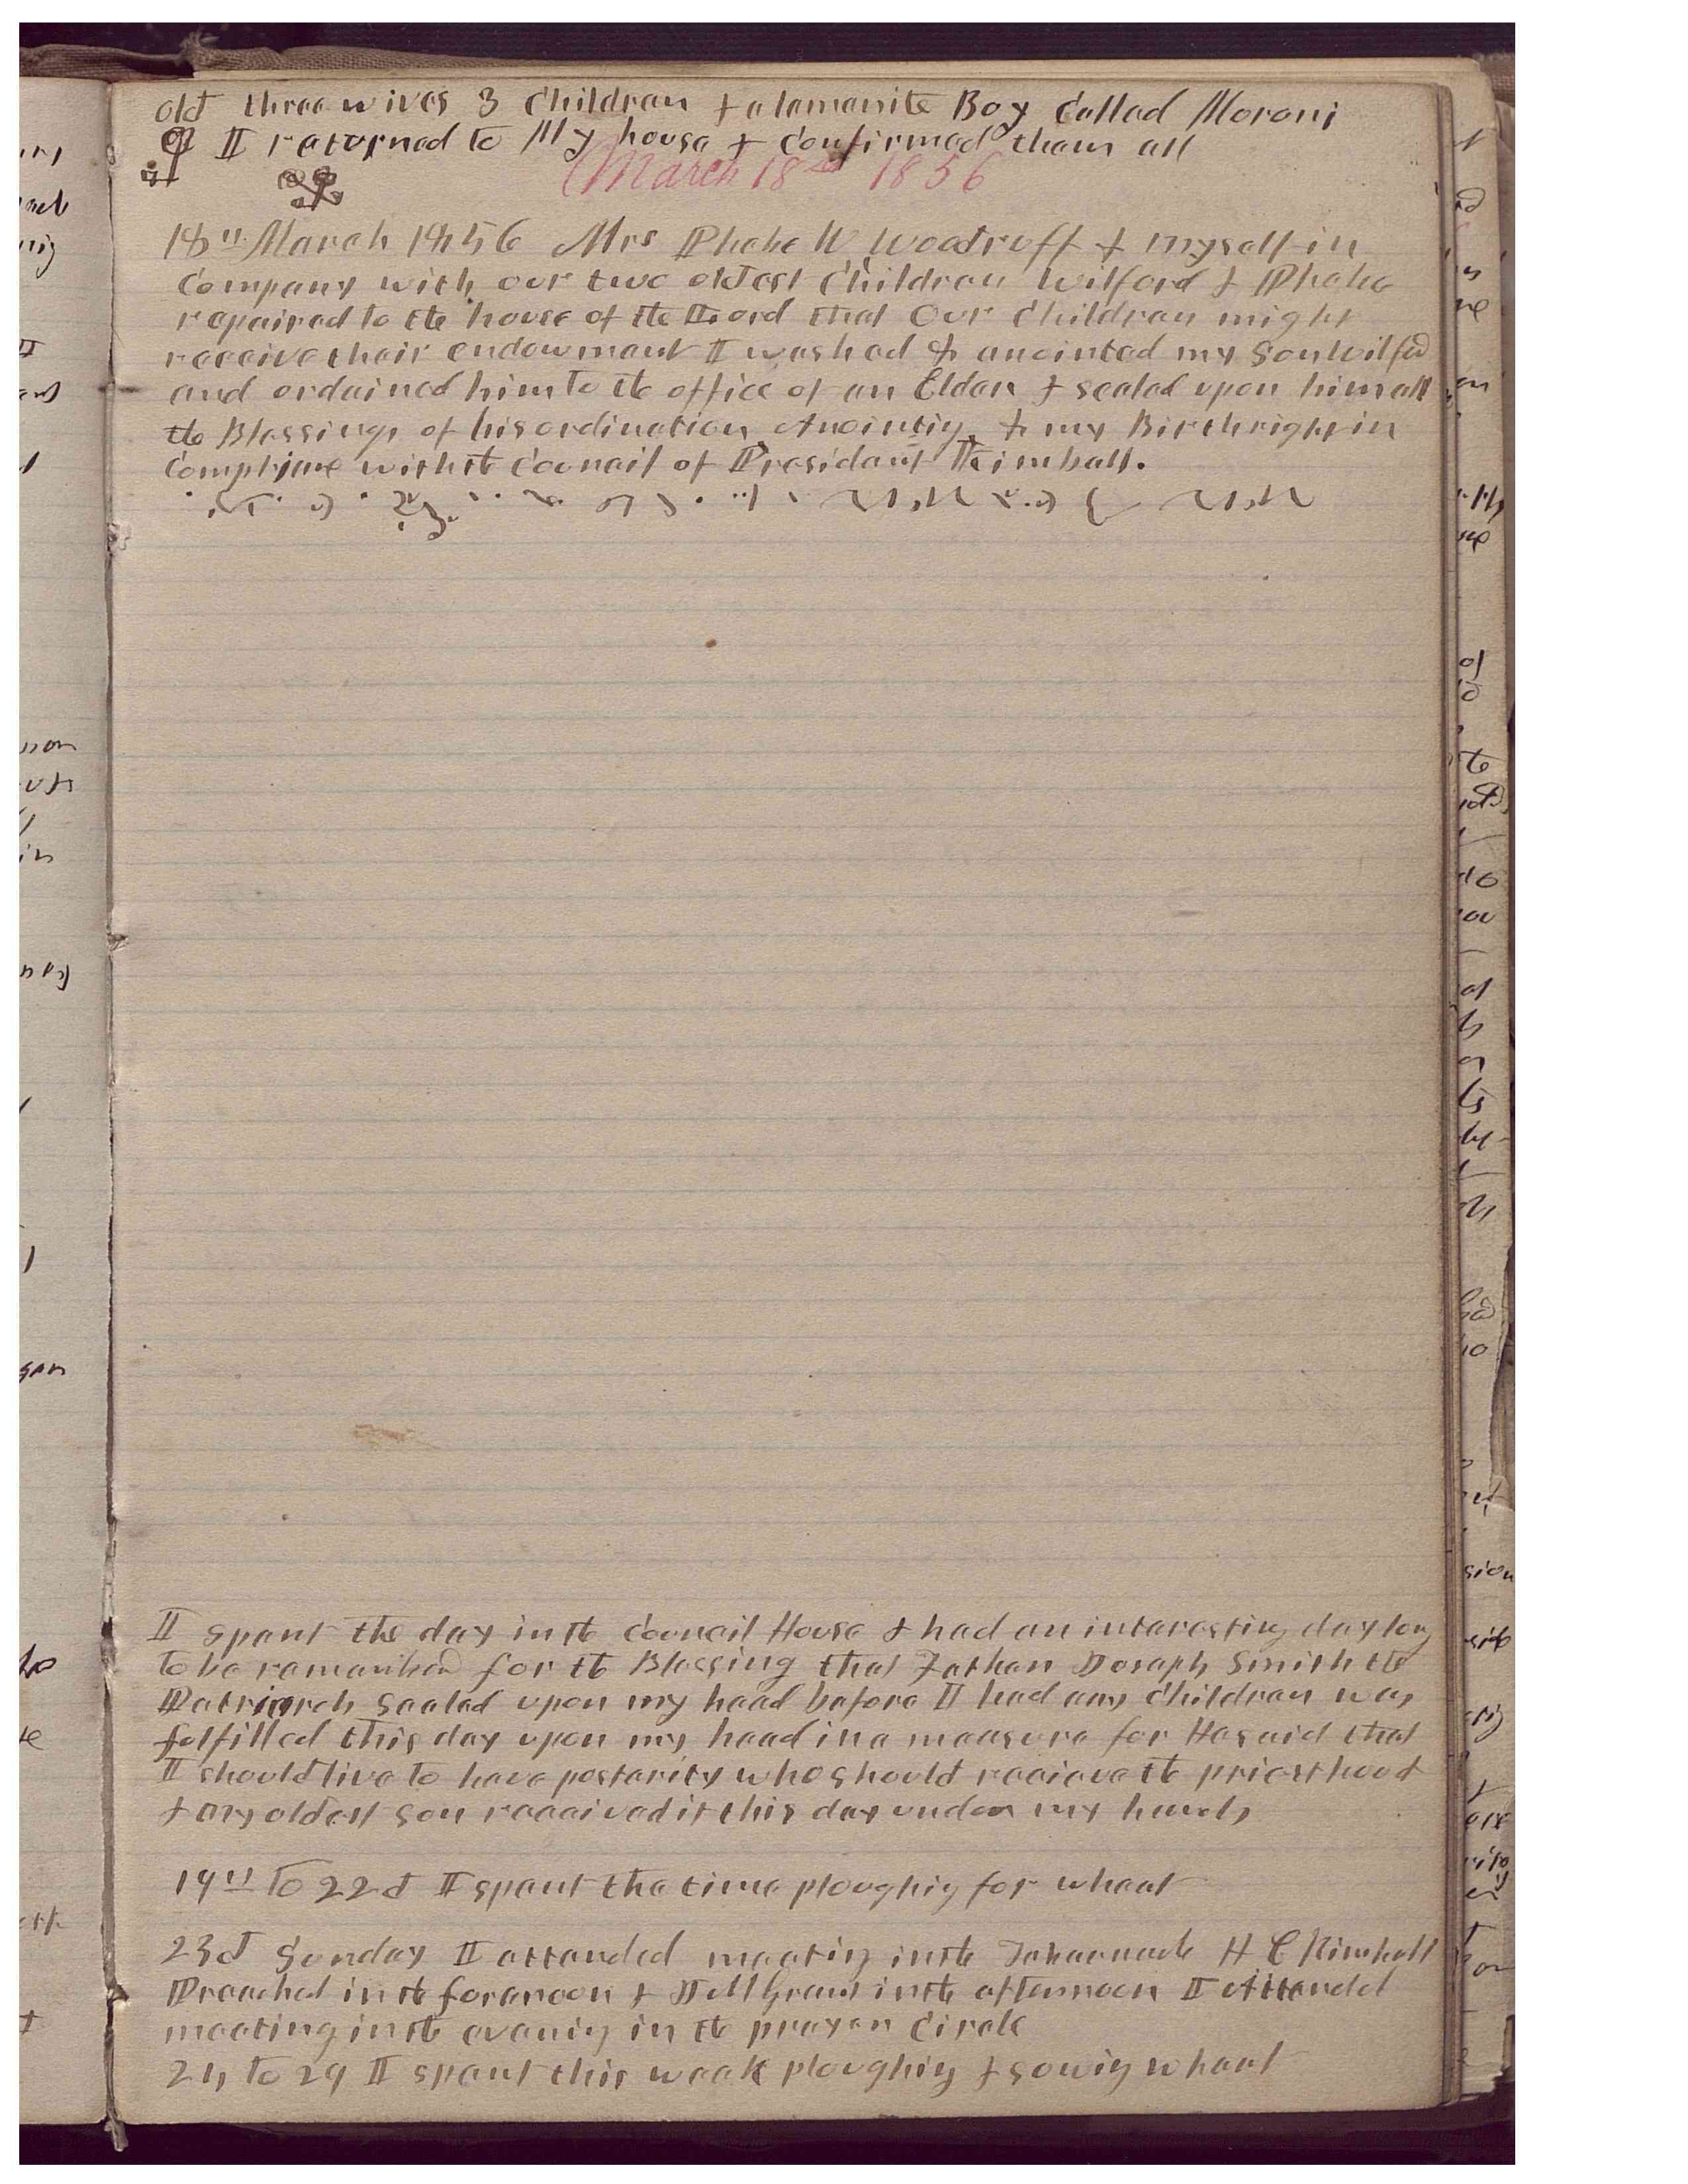 old three wives 3 Children & a lamanite Boy Called Moroni
I returned to My house & Confirmed them all
March 18th 1856
18th March 1856 Mrs Phebe W Woodruff & myself in
Company with our two oldest Children Wilford & Phebe
repaired to the house of the Lord that Our Children might
receive their endowment I washed & anointed my Son Wilford
and ordained him to the office of an Elder & sealed upon him all
the Blessings of his ordination Anointing & my Birthright in
Complyance with the Council of President Kimball.
I spent the day in the Council House & had an interesting day long
to be remembered for the Blessing that Father Joseph Smith the
Patriarch Sealed upon my head before I had any Children was
fulfilled this day upon my head in a measure for He said that
I should live to have posterity who should receieve the priesthood
& my oldest Son receeived it this day under my hands
19th to 22d I spent the time ploughing for wheat
23d Sunday I attended meeting in the Tabernacle H C Kimball
Preached in the forenoon & J M Grant in the afternoon I Attended
meeting in the evening in the prayer Circle
24 to 29 I spent this week ploughing & sowing wheat